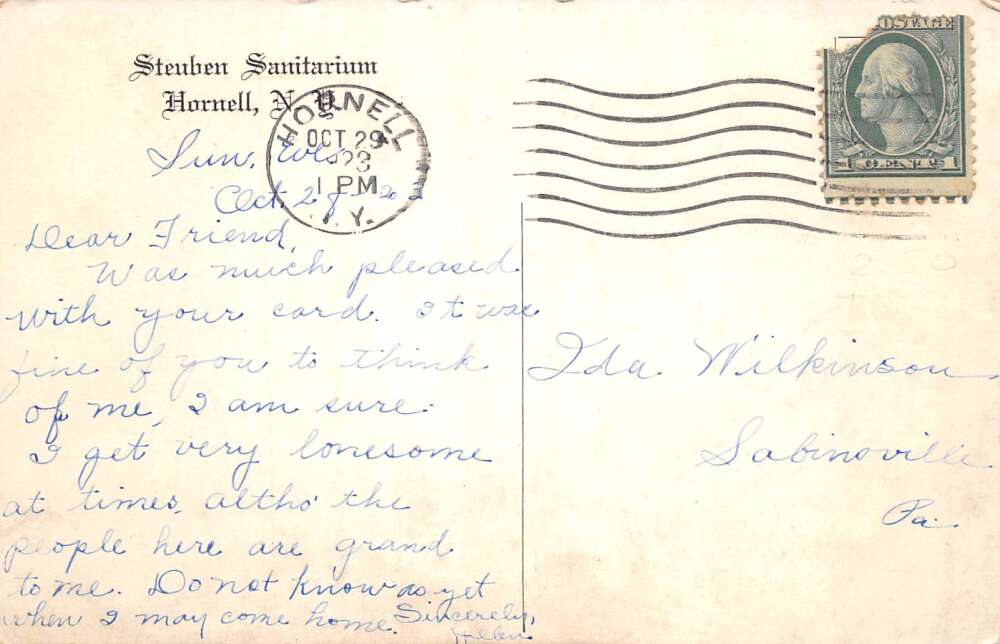 Steuben Sanitarium
Hornell, N. Y.
HORNELL
OCT 29
1 PM
N.Y.
POSTAGE
1 CENT 1
Sun. Eve.
Oct. 28
Dear Friend,
Was much pleased
with your card. It was
fine of you to think
of me, I am sure.
I get very lonesome
at times, altho' the
people here are grand
to me. Do not know as yet
when I may come home. Sincerely,
Helen
Ida Wilkinson,
Sabinsville
Pa.